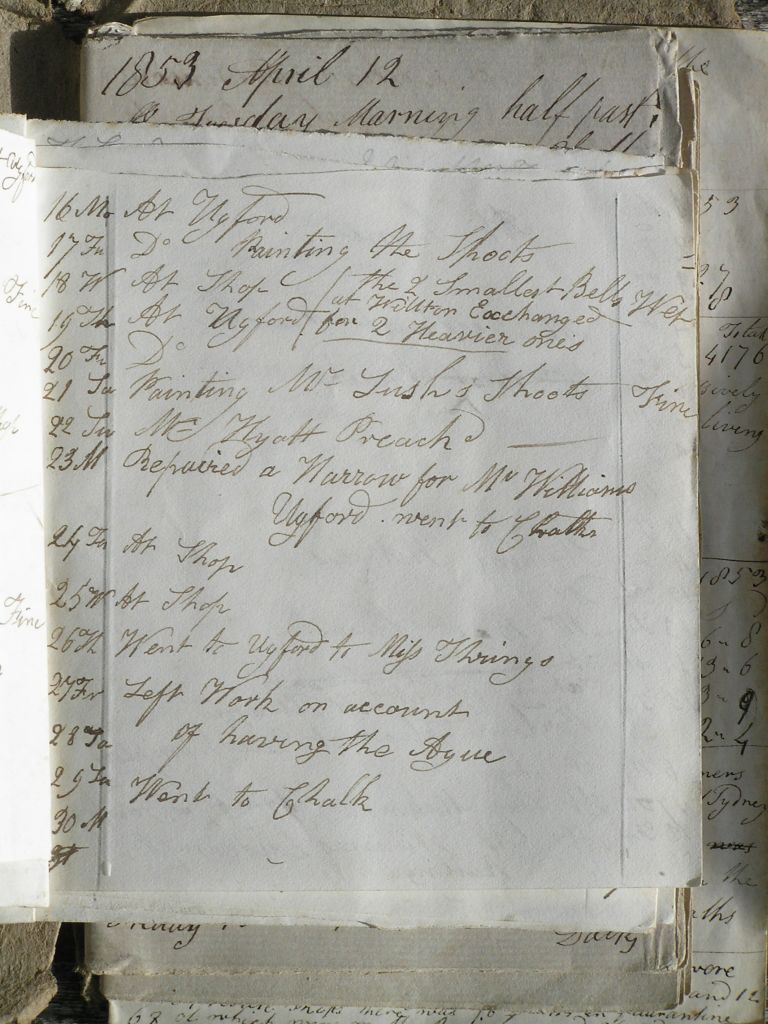 1853 April 12
Tuesday Morning half past
16 Mo At Ugford
17 Tu Do Painting the Shoots
18 W At Shop (the 2 Smallest Bells Wet
19 Th At Ugford at Willton Exchanged
20 Fr Do for 2 Heavier ones
21 Sa Painting Mr Lush's Shoots Fine
22 Su Mr Hyatt Preachd
23 M Repaired a Harrow for Mr Williams
Ugford went to Chalk
24 Tu At Shop
25 W At Shop
26 Th Went to Ugford to Miss Thrings
27 Fr Left Work on account
28 Sa of having the Ague
29 Su Went to Chalk
30 M
31
Fine
Fine
53
8
Total
4176
living
1853
6 - 8
3 - 6
3 - 9
2 - 4
Sydney
was
the
were
and 12
there was
quarantine